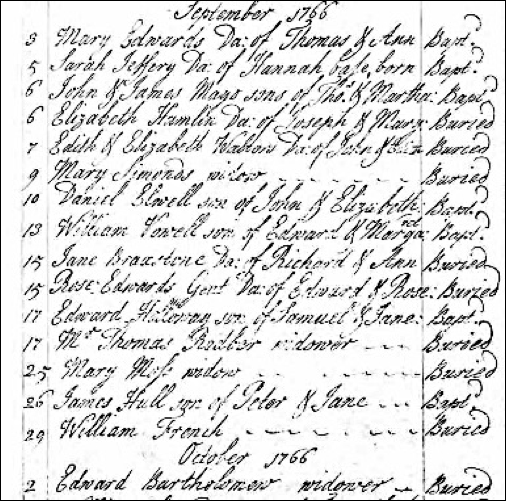 September 1766
3 Mary Edwards Da: of Thomas & Ann Bapt.d
5 Sarah Jeffery Da: of Hannah base born Bapt.d
6 John & James Mago sons of Tho.s & Martha: Bapt.d
6 Elizabeth Hamlin Da: of Joseph & Mary Buried
7 Edith & Elizabeth Da: of John & Buried
9 Mary Simonds widow Buried
10 Daniel Elwell son of John & Elizabeth: Bapt.d
13 William Vowell son of Edward & Marga.ret Bapt.d
15 Jane Braxstone Da: of Richard & Ann Buried
15 Rose Edwards Gent Da: of Edward & Rose: Buried
17 Edward Holloway son of Samuel & Jane: Bapt.d
17 M.r Thomas widower Buried
25 Mary Moss widow Buried
26 James Hull son of Peter & Jane Bapt.d
29 William French Buried
October 1766
2 Edward Bartholomew widower Buried